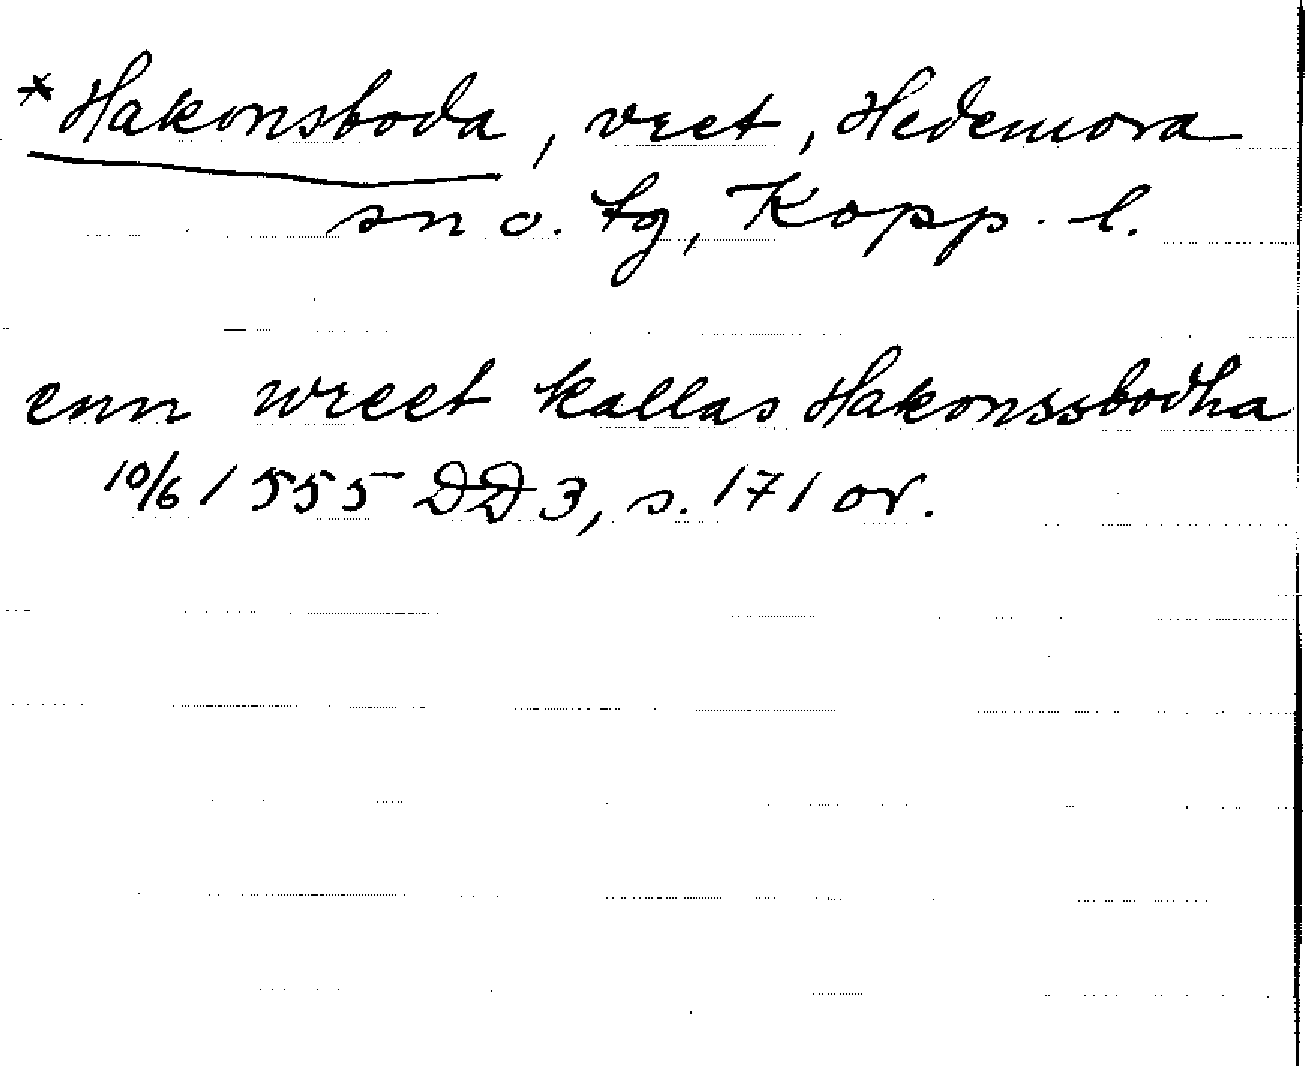 *Hakonsboda, vret, Hedemora
sn o. tg, Kopp. l.
enn wreet kallas Hakonssbodha
10/6 1555 DD 3, s. 171 or.